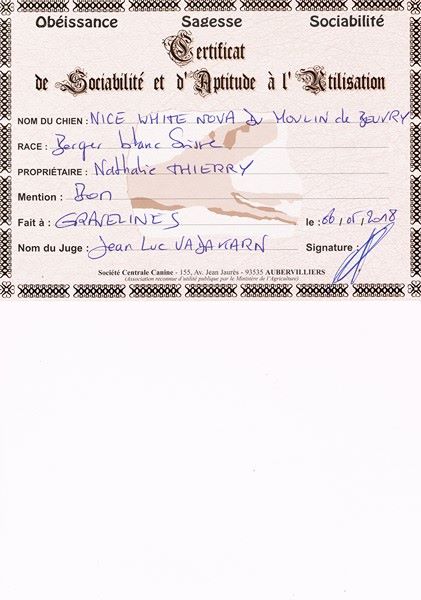 Obéissance Sagesse Sociabilité
Certificat
de Sociabilité et d'Aptitude à l'Utilisation
NOM DU CHIEN : NICE WHITE NOVA Du MOULIN de BEUVRY
RACE : Berger blanc Suisse
PROPRIÉTAIRE : Nathalie THIERRY
Mention : Bon
Fait à : GRAVELINES le : 06/05/2018
Nom du Juge : Jean Luc VADAKARN Signature :
Société Centrale Canine - 155, Av. Jean Jaurès - 93535 AUBERVILLIERS
(Association reconnue d'utilité publique par le Ministère de l'Agriculture)